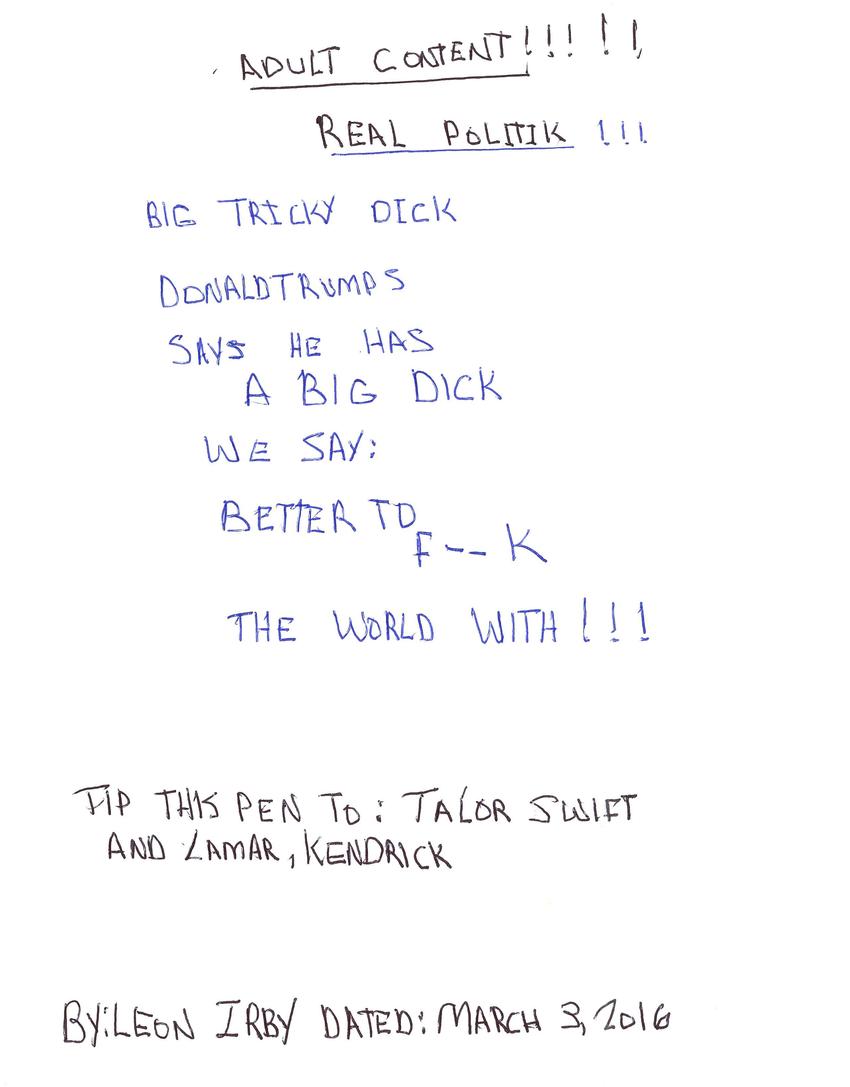 ADULT CONTENT!!!!!!
REAL POLITIK !!!
BIG TRICKY DICK
DONALDTRUMPS
SAYS HE HAS
A BIG DICK
WE SAY:
BETTER TO
F -- K
THE WORLD WITH!!!
TIP THIS PEN TO: TALOR SWIFT
AND LAMAR, KENDRICK
BY:LEON IRBY DATED: MARCH 3, 2016